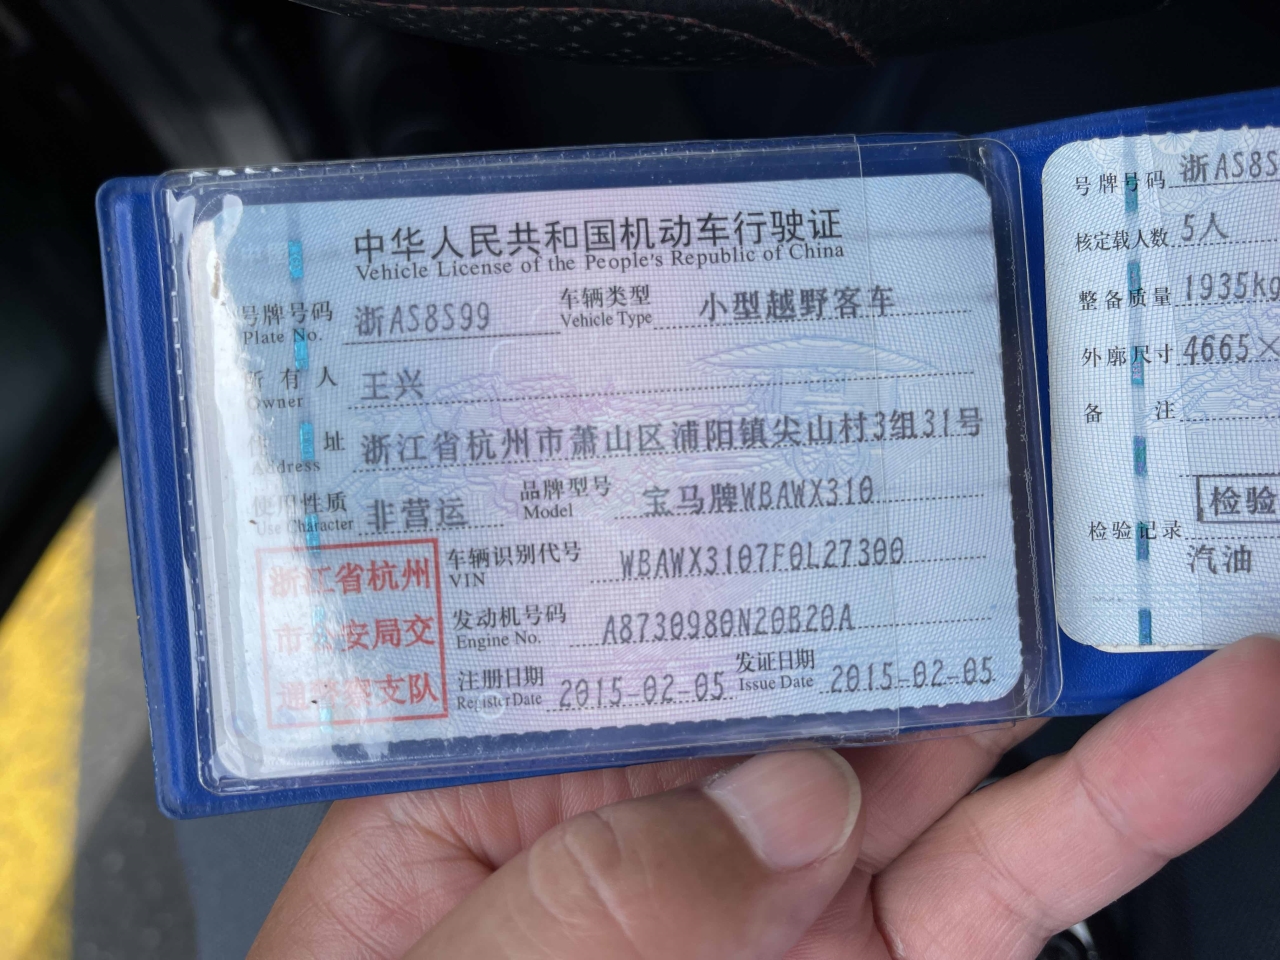 中华人民共和国机动车行驶证
Vehicle License of the People's Republic of China
号牌号码 浙AS8S99 车辆类型 小型越野客车
Plate No. Vehicle Type
所有人 王兴
Owner
住址 浙江省杭州市萧山区浦阳镇尖山村3组31号
Address
使用性质 非营运 品牌型号 宝马牌WBAWX310
Use Character Model
车辆识别代号 WBAWX3107F0L27300
VIN
发动机号码 A8730980N20B20A
Engine No.
注册日期 2015-02-05 发证日期 2015-02-05
Register Date Issue Date
浙江省杭州
市公安局交
通警察支队
号牌号码 浙AS8S
核定载人数 5人
整备质量 1935kg
外廓尺寸 4665×
备注
检验
检验记录
汽油